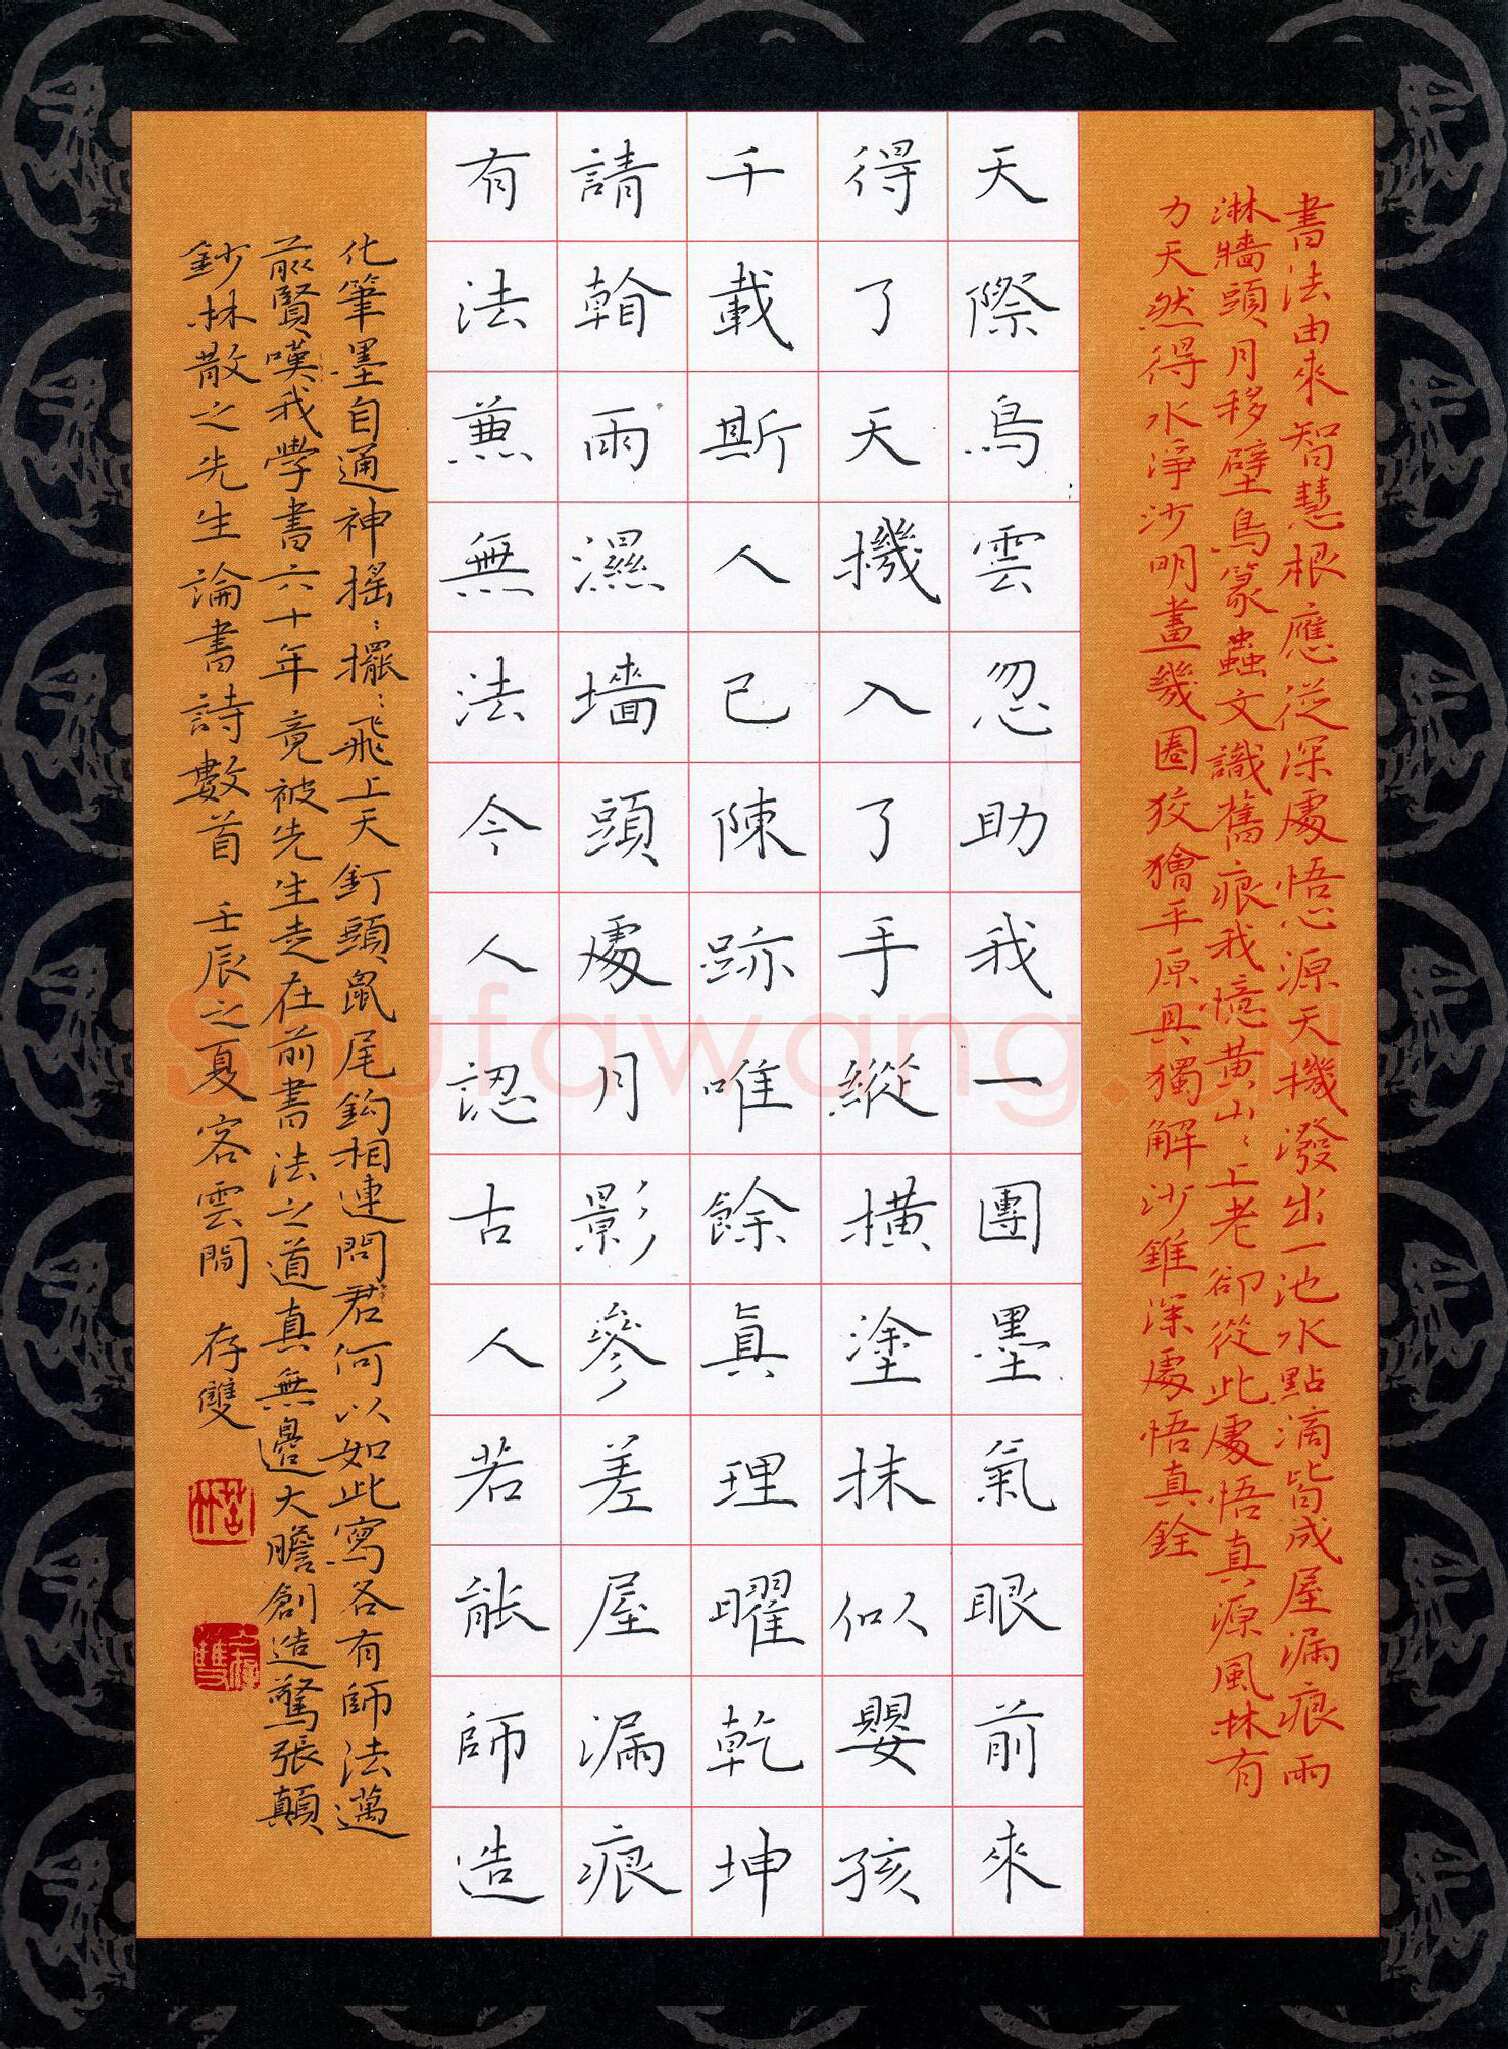 書法由來智慧根應從深處悟心源天機潑出一池水點滴皆成屋漏痕雨
淋牆頭月移壁鳥篆蟲文識舊痕我憶黃山〻上老卻從此處悟真源風林有
力天然得水淨沙明畫幾圈狡獪平原具獨解沙錐深處悟真銓
天際鳥雲忽助我一團墨氣眼前來
得了天機入了手縱橫塗抹似嬰孩
千載斯人已陳跡唯餘真理曜乾坤
請翰雨濕墻頭處月影參差屋漏痕
有法兼無法今人認古人若能師造
化筆墨自通神搖〻擺〻飛上天釘頭鼠尾鈎相連問君何以如此寫各有師法邁
前賢嘆我學書六十年竟被先生走在前書法之道真無邊大膽創造驚張顛
鈔林散之先生論書詩數首 壬辰之夏客雲間 存雙
Shufawang.CN